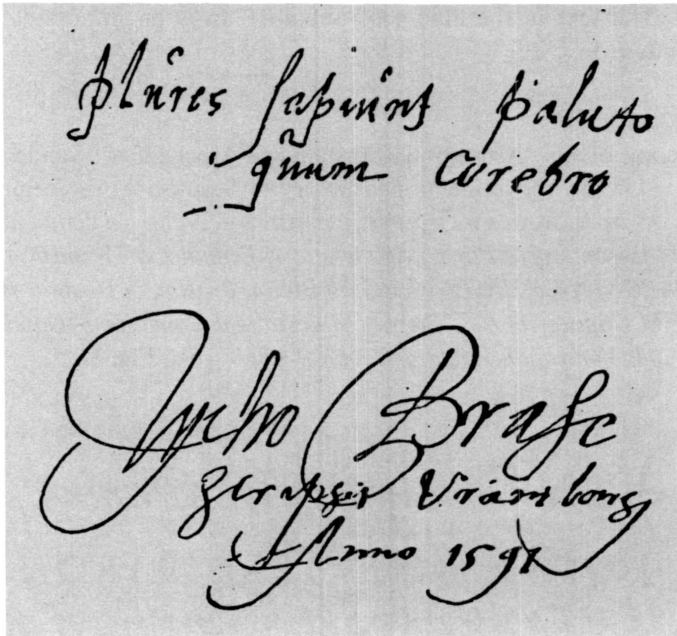 plures sapiunt palato
quam Cerebro
Tycho Brahe
Scripsit Uraniburg
Anno 1591